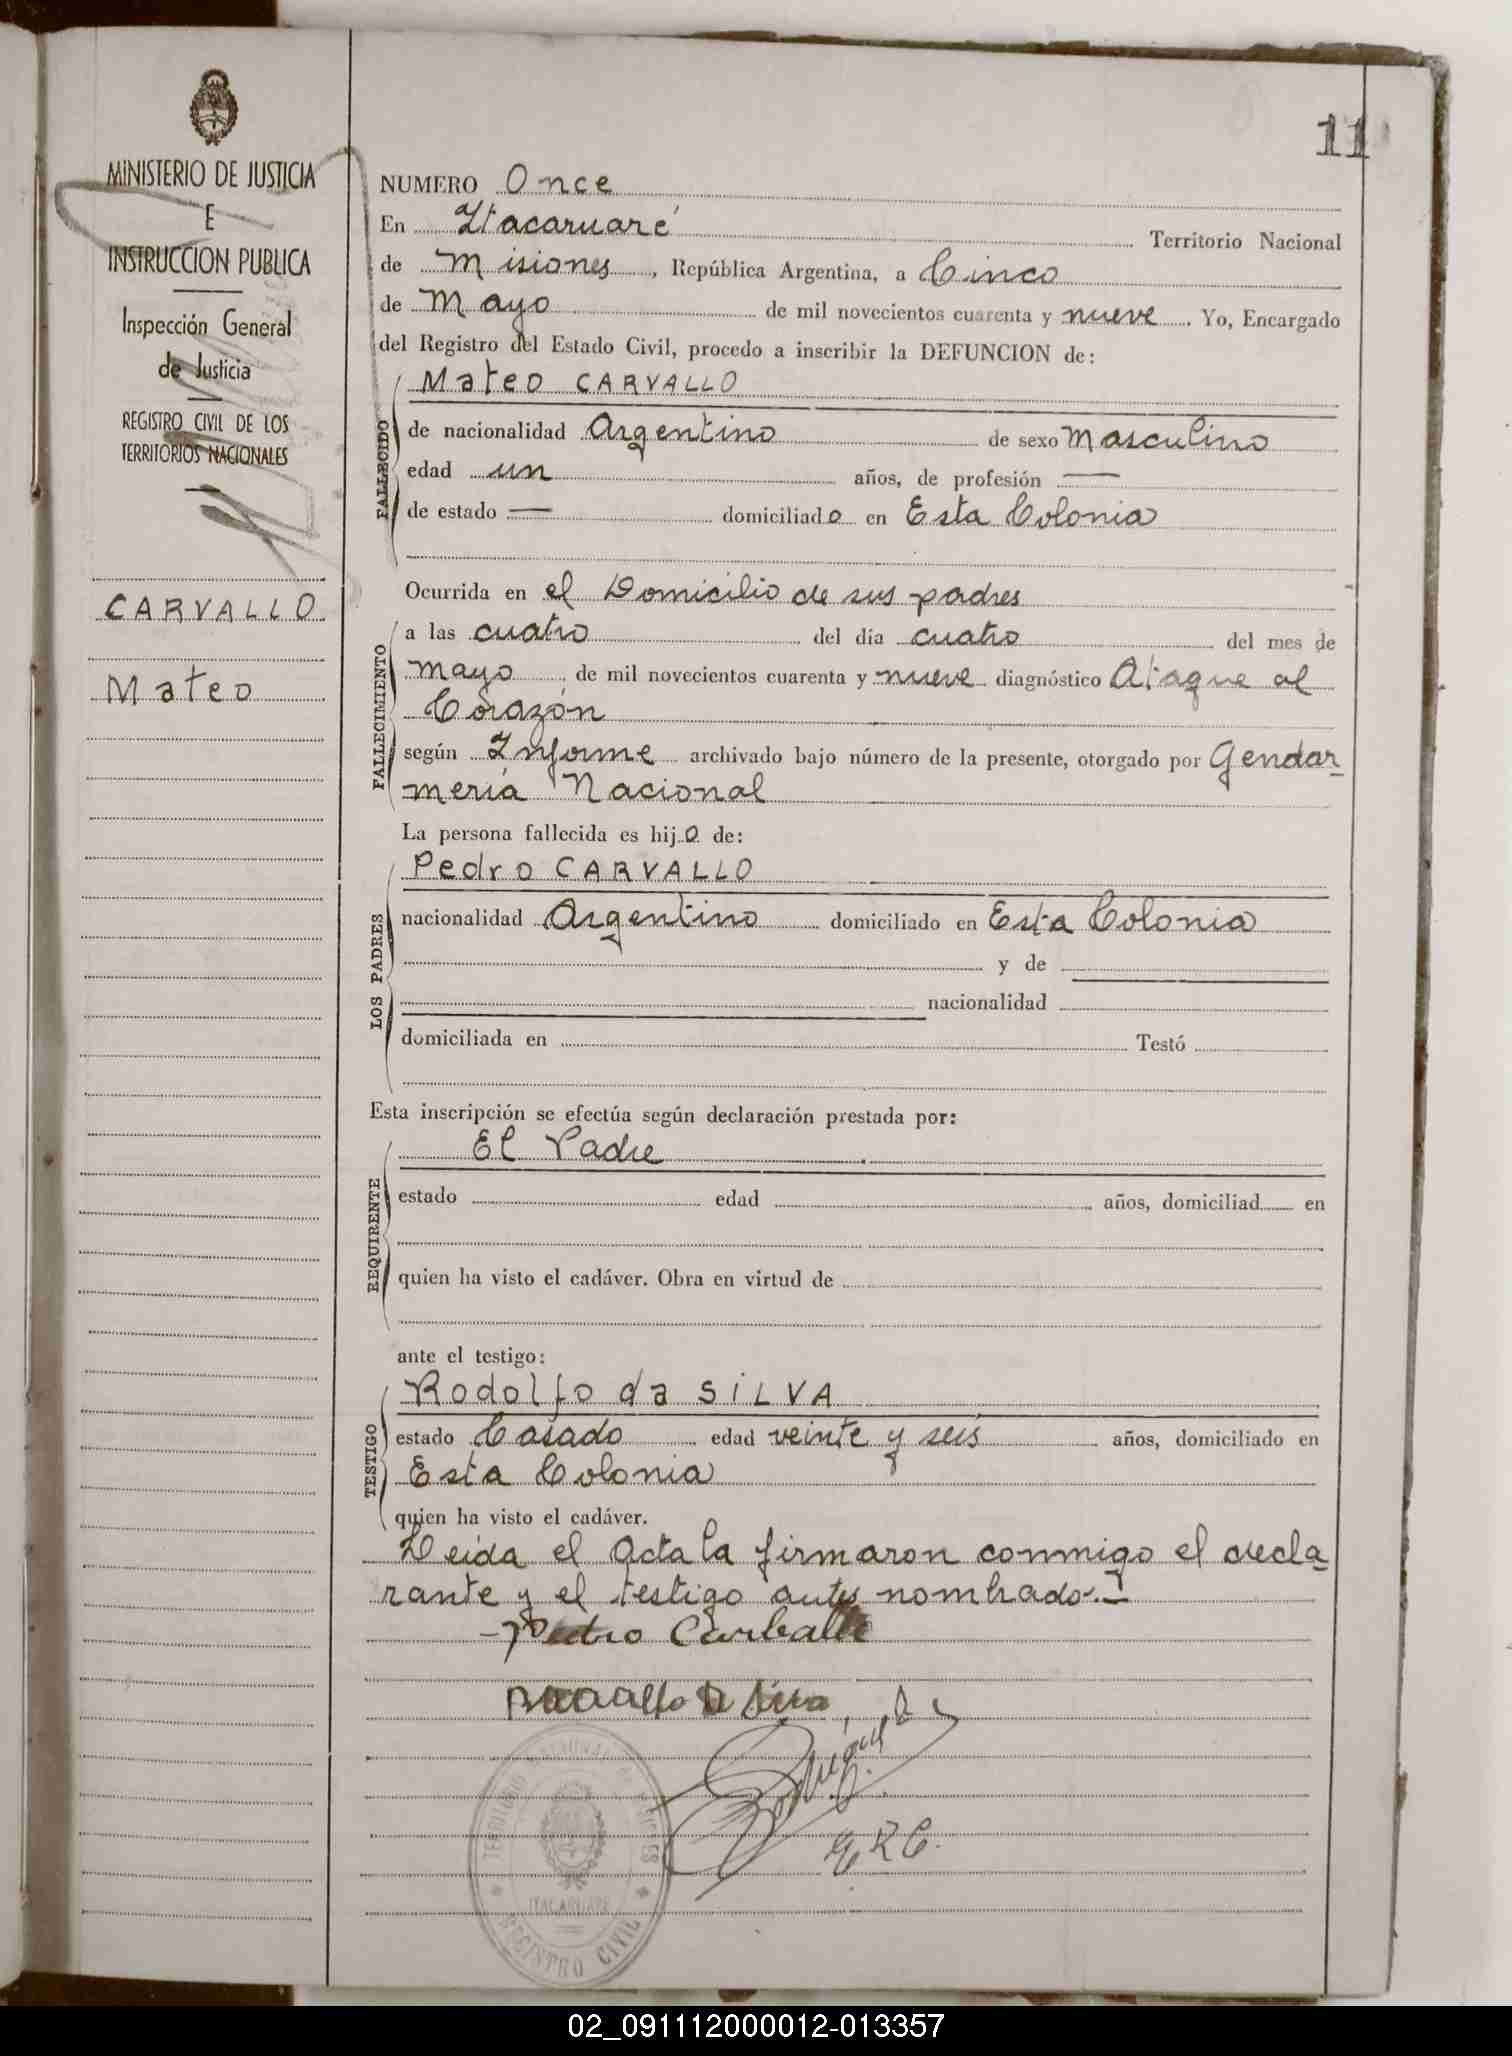 11
MINISTERIO DE JUSTICIA
E
INSTRUCCION PUBLICA
Inspección General
de Justicia
REGISTRO CIVIL DE LOS
TERRITORIOS NACIONALES
CARVALLO
Mateo
NUMERO Once
En Itacaruaré Territorio Nacional
de Misiones, República Argentina, a Cinco
de Mayo de mil novecientos cuarenta y nueve. Yo, Encargado
del Registro del Estado Civil, procedo a inscribir la DEFUNCION de:
FALLECIDO
Mateo CARVALLO
de nacionalidad Argentino de sexo Masculino
edad un años, de profesión —
de estado — domiciliado en Esta Colonia
Ocurrida en el Domicilio de sus padres
FALLECIMIENTO
a las cuatro del día cuatro del mes de
mayo de mil novecientos cuarenta y nueve diagnóstico Ataque al
Corazón
según Informe archivado bajo número de la presente, otorgado por Gendar-
mería Nacional
La persona fallecida es hijo de:
LOS PADRES
Pedro CARVALLO
nacionalidad Argentino domiciliado en Esta Colonia
y de
nacionalidad
domiciliada en Testó
Esta inscripción se efectúa según declaración prestada por:
REQUIRENTE
El Padre
estado edad años, domiciliad en
quien ha visto el cadáver. Obra en virtud de
ante el testigo:
TESTIGO
Rodolfo da SILVA
estado Casado edad veinte y seis años, domiciliado en
Esta Colonia
quien ha visto el cadáver.
Leída el Acta la firmaron conmigo el decla-
rante y el testigo antes nombrado.-
Pedro Carballo
E.R.C.
TERRITORIO NACIONAL DE MISIONES
ITACARUARE
REGISTRO CIVIL
02_091112000012-013357